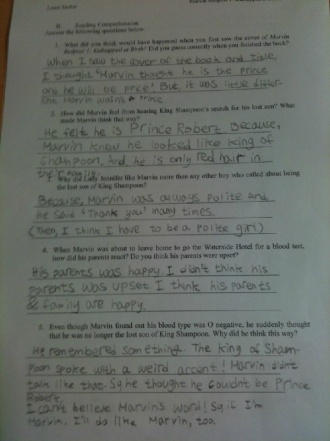 II. Reading Comprehension
Answer the following questions below.
1. What did you think would have happened when you first saw the cover of Marvin
Redpost 1: Kidnapped at Birth? Did you guess correctly when you finished the book?
When I saw the cover of the book and title,
I thought "Marvin thought he is the prince
and he will be price". But it was little differ-
ent. Marvin wants prince
2. How did Marvin feel from hearing King Shampoon's search for his lost son? What
made Marvin think that way?
He felt he is Prince Robert Because,
Marvin knew he looked like king of
Shampoon, And, he is only red hair in
the family.
3. Why did Lady Jennifer like Marvin more than any other boy who called about being
the lost son of King Shampoon?
Because, Marvin was always polite and
he said 'Thank you' many times.
(Then, I think I have to be a polite girl)
4. When Marvin was about to leave home to go the Waterside Hotel for a blood test,
how did his parents react? Do you think his parents were upset?
His parents was happy. I didn't think his
parents was upset I think his parents
& family are happy.
5. Even though Marvin found out his blood type was O negative, he suddenly thought
that he was no longer the lost son of King Shampoon. Why did he think this way?
He remembered something. The king of Sham-
poon spoke with a weird arcent! Marvin didn't
talk like that. So he thought he coudnt be Prince
Robert.
I can't believe Marvin's word! So if I'm
Marvin. I'll do like Marvin, too.